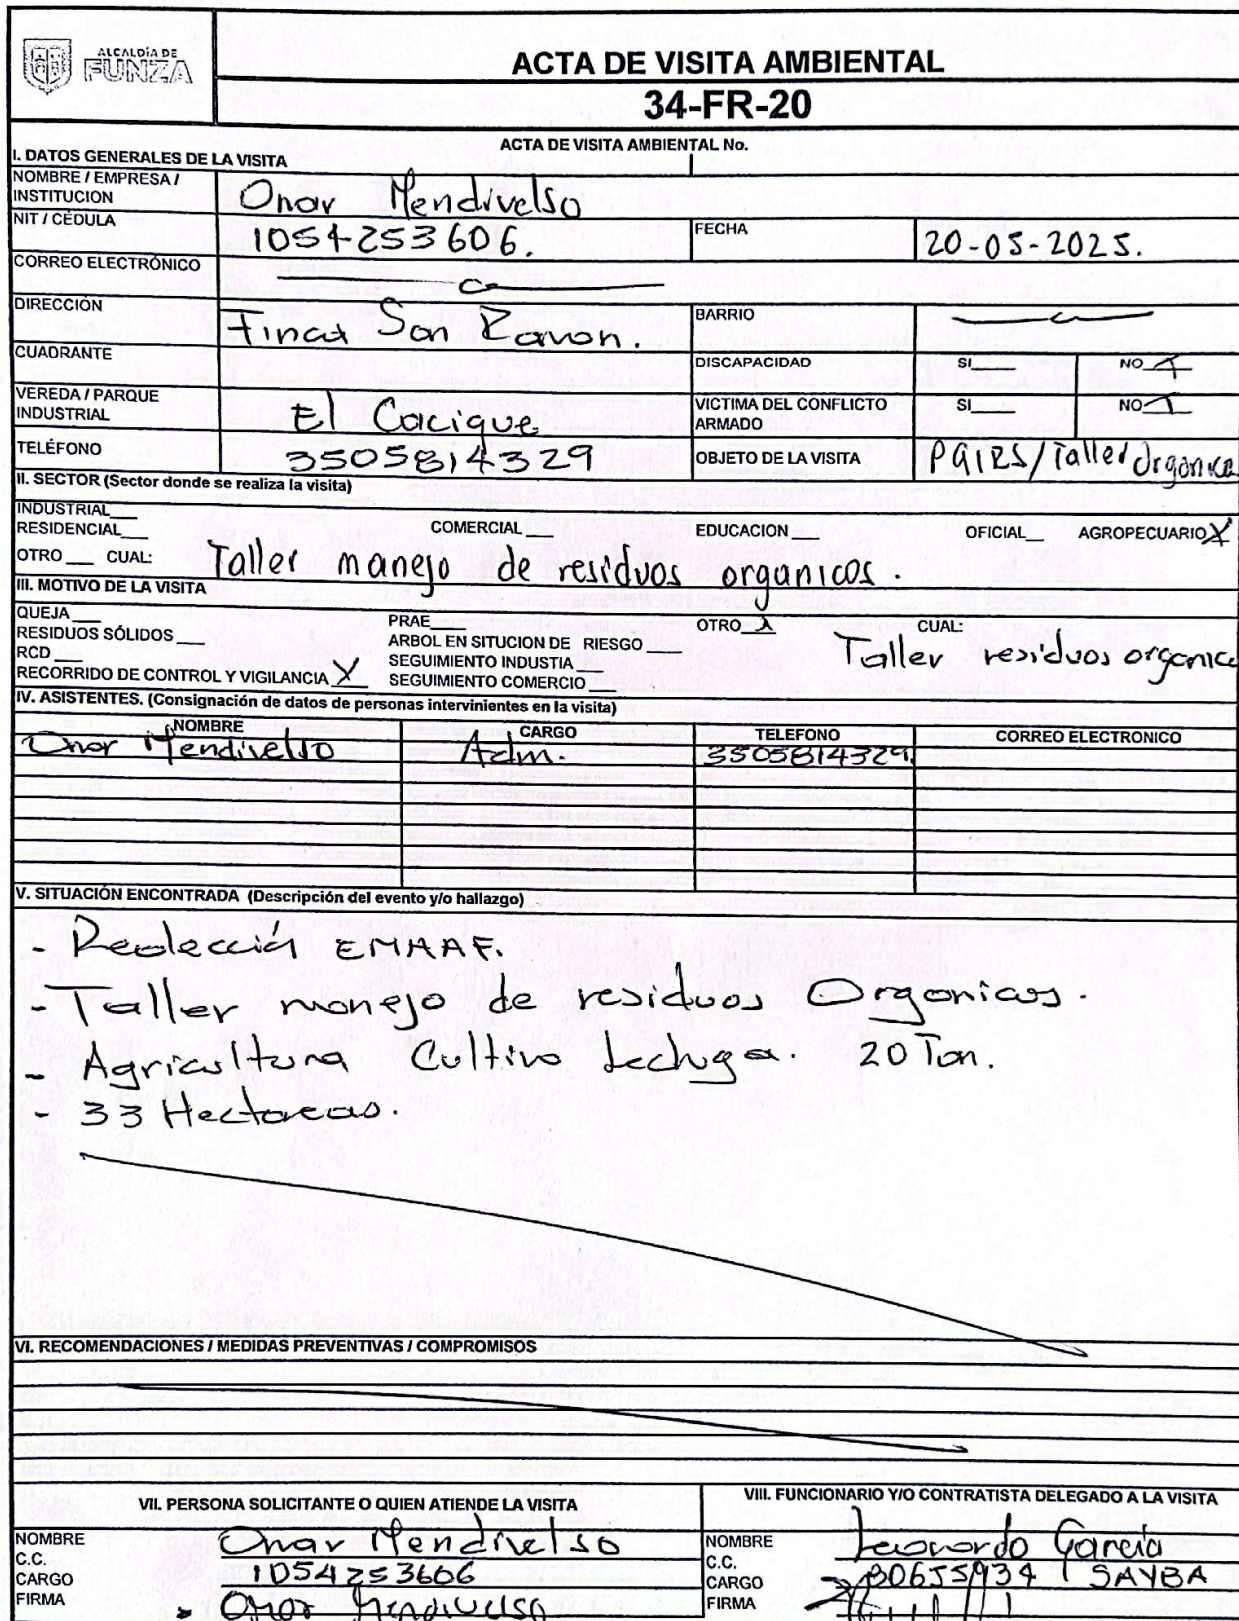 ALCALDÍA DE
FUNZA
ACTA DE VISITA AMBIENTAL
34-FR-20
ACTA DE VISITA AMBIENTAL No.
I. DATOS GENERALES DE LA VISITA
NOMBRE / EMPRESA / INSTITUCION Onar Mendivelso
NIT / CÉDULA 1054253606. FECHA 20-05-2025.
CORREO ELECTRÓNICO
DIRECCIÓN Finca San Ramon. BARRIO
CUADRANTE DISCAPACIDAD SI____ NO
VEREDA / PARQUE INDUSTRIAL El Cacique VICTIMA DEL CONFLICTO ARMADO SI____ NO
TELÉFONO 3505814329 OBJETO DE LA VISITA PGIRS/Taller Organico
II. SECTOR (Sector donde se realiza la visita)
INDUSTRIAL___
RESIDENCIAL___ COMERCIAL___ EDUCACION___ OFICIAL__ AGROPECUARIO X
OTRO___ CUAL: Taller manejo de residuos organicos.
III. MOTIVO DE LA VISITA
QUEJA___ PRAE____ OTRO X CUAL:
RESIDUOS SÓLIDOS___ ARBOL EN SITUCION DE RIESGO____ Taller residuos organico
RCD___ SEGUIMIENTO INDUSTIA___
RECORRIDO DE CONTROL Y VIGILANCIA X SEGUIMIENTO COMERCIO___
IV. ASISTENTES. (Consignación de datos de personas intervinientes en la visita)
NOMBRE CARGO TELEFONO CORREO ELECTRONICO
Onar Mendivelso Adm. 3505814329.
V. SITUACIÓN ENCONTRADA (Descripción del evento y/o hallazgo)
- Recolección EMAAF.
- Taller manejo de residuos Organicos.
- Agricultura Cultivo Lechuga. 20 Ton.
- 33 Hectareas.
VI. RECOMENDACIONES / MEDIDAS PREVENTIVAS / COMPROMISOS
VII. PERSONA SOLICITANTE O QUIEN ATIENDE LA VISITA VIII. FUNCIONARIO Y/O CONTRATISTA DELEGADO A LA VISITA
NOMBRE Onar Mendivelso NOMBRE Leonardo Garcia
C.C. 1054253606 C.C. 80655934 SAYBA
CARGO CARGO
FIRMA Omar Mendivelso FIRMA